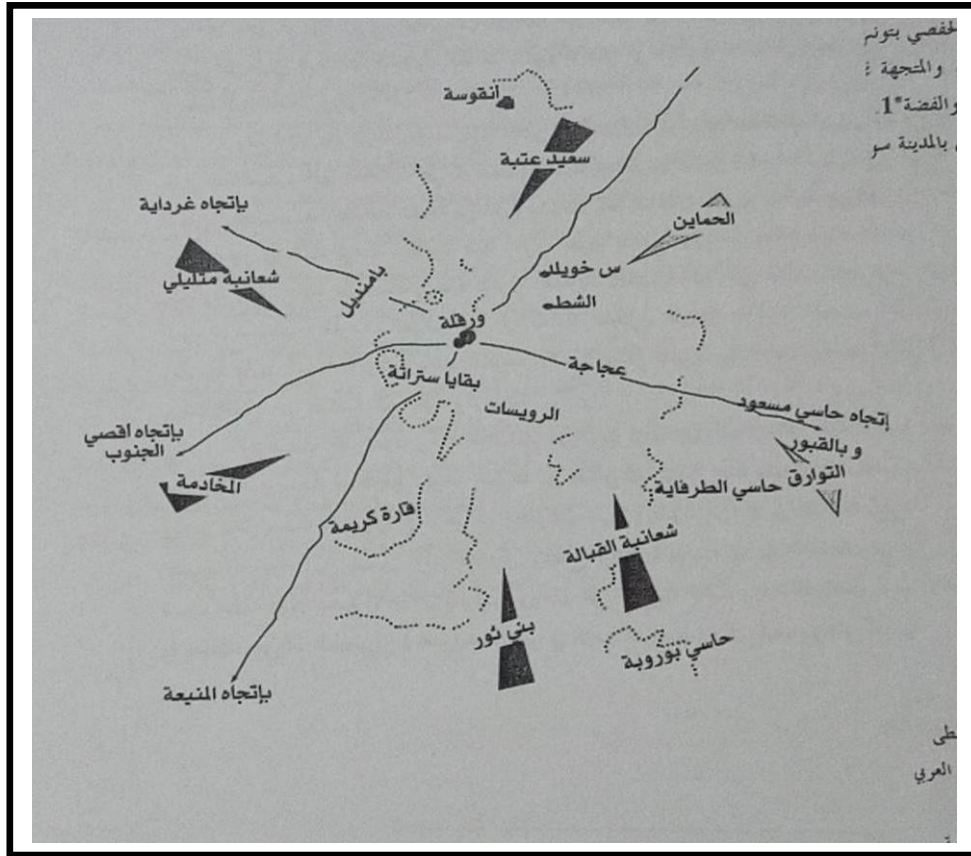 الحفصي بتونس
والمتجهة
والفضة"1.
بالمدينة سو
أنقوسة
سعيد عتبة
بإتجاه غرداية
الحماين
شعانبة متليلي
بامنديل
س خويلد
الشط
ورقلة
عجاجة
بقايا ستراتة
الرويسات
إتجاه حاسي مسعود
و بالقبور
بإتجاه أقصي
الجنوب
التوارق
حاسي الطرفاية
المخادمة
قارة كريمة
شعانبة القبالة
بني ثور
حاسي بوروبة
بإتجاه المنيعة
العربي